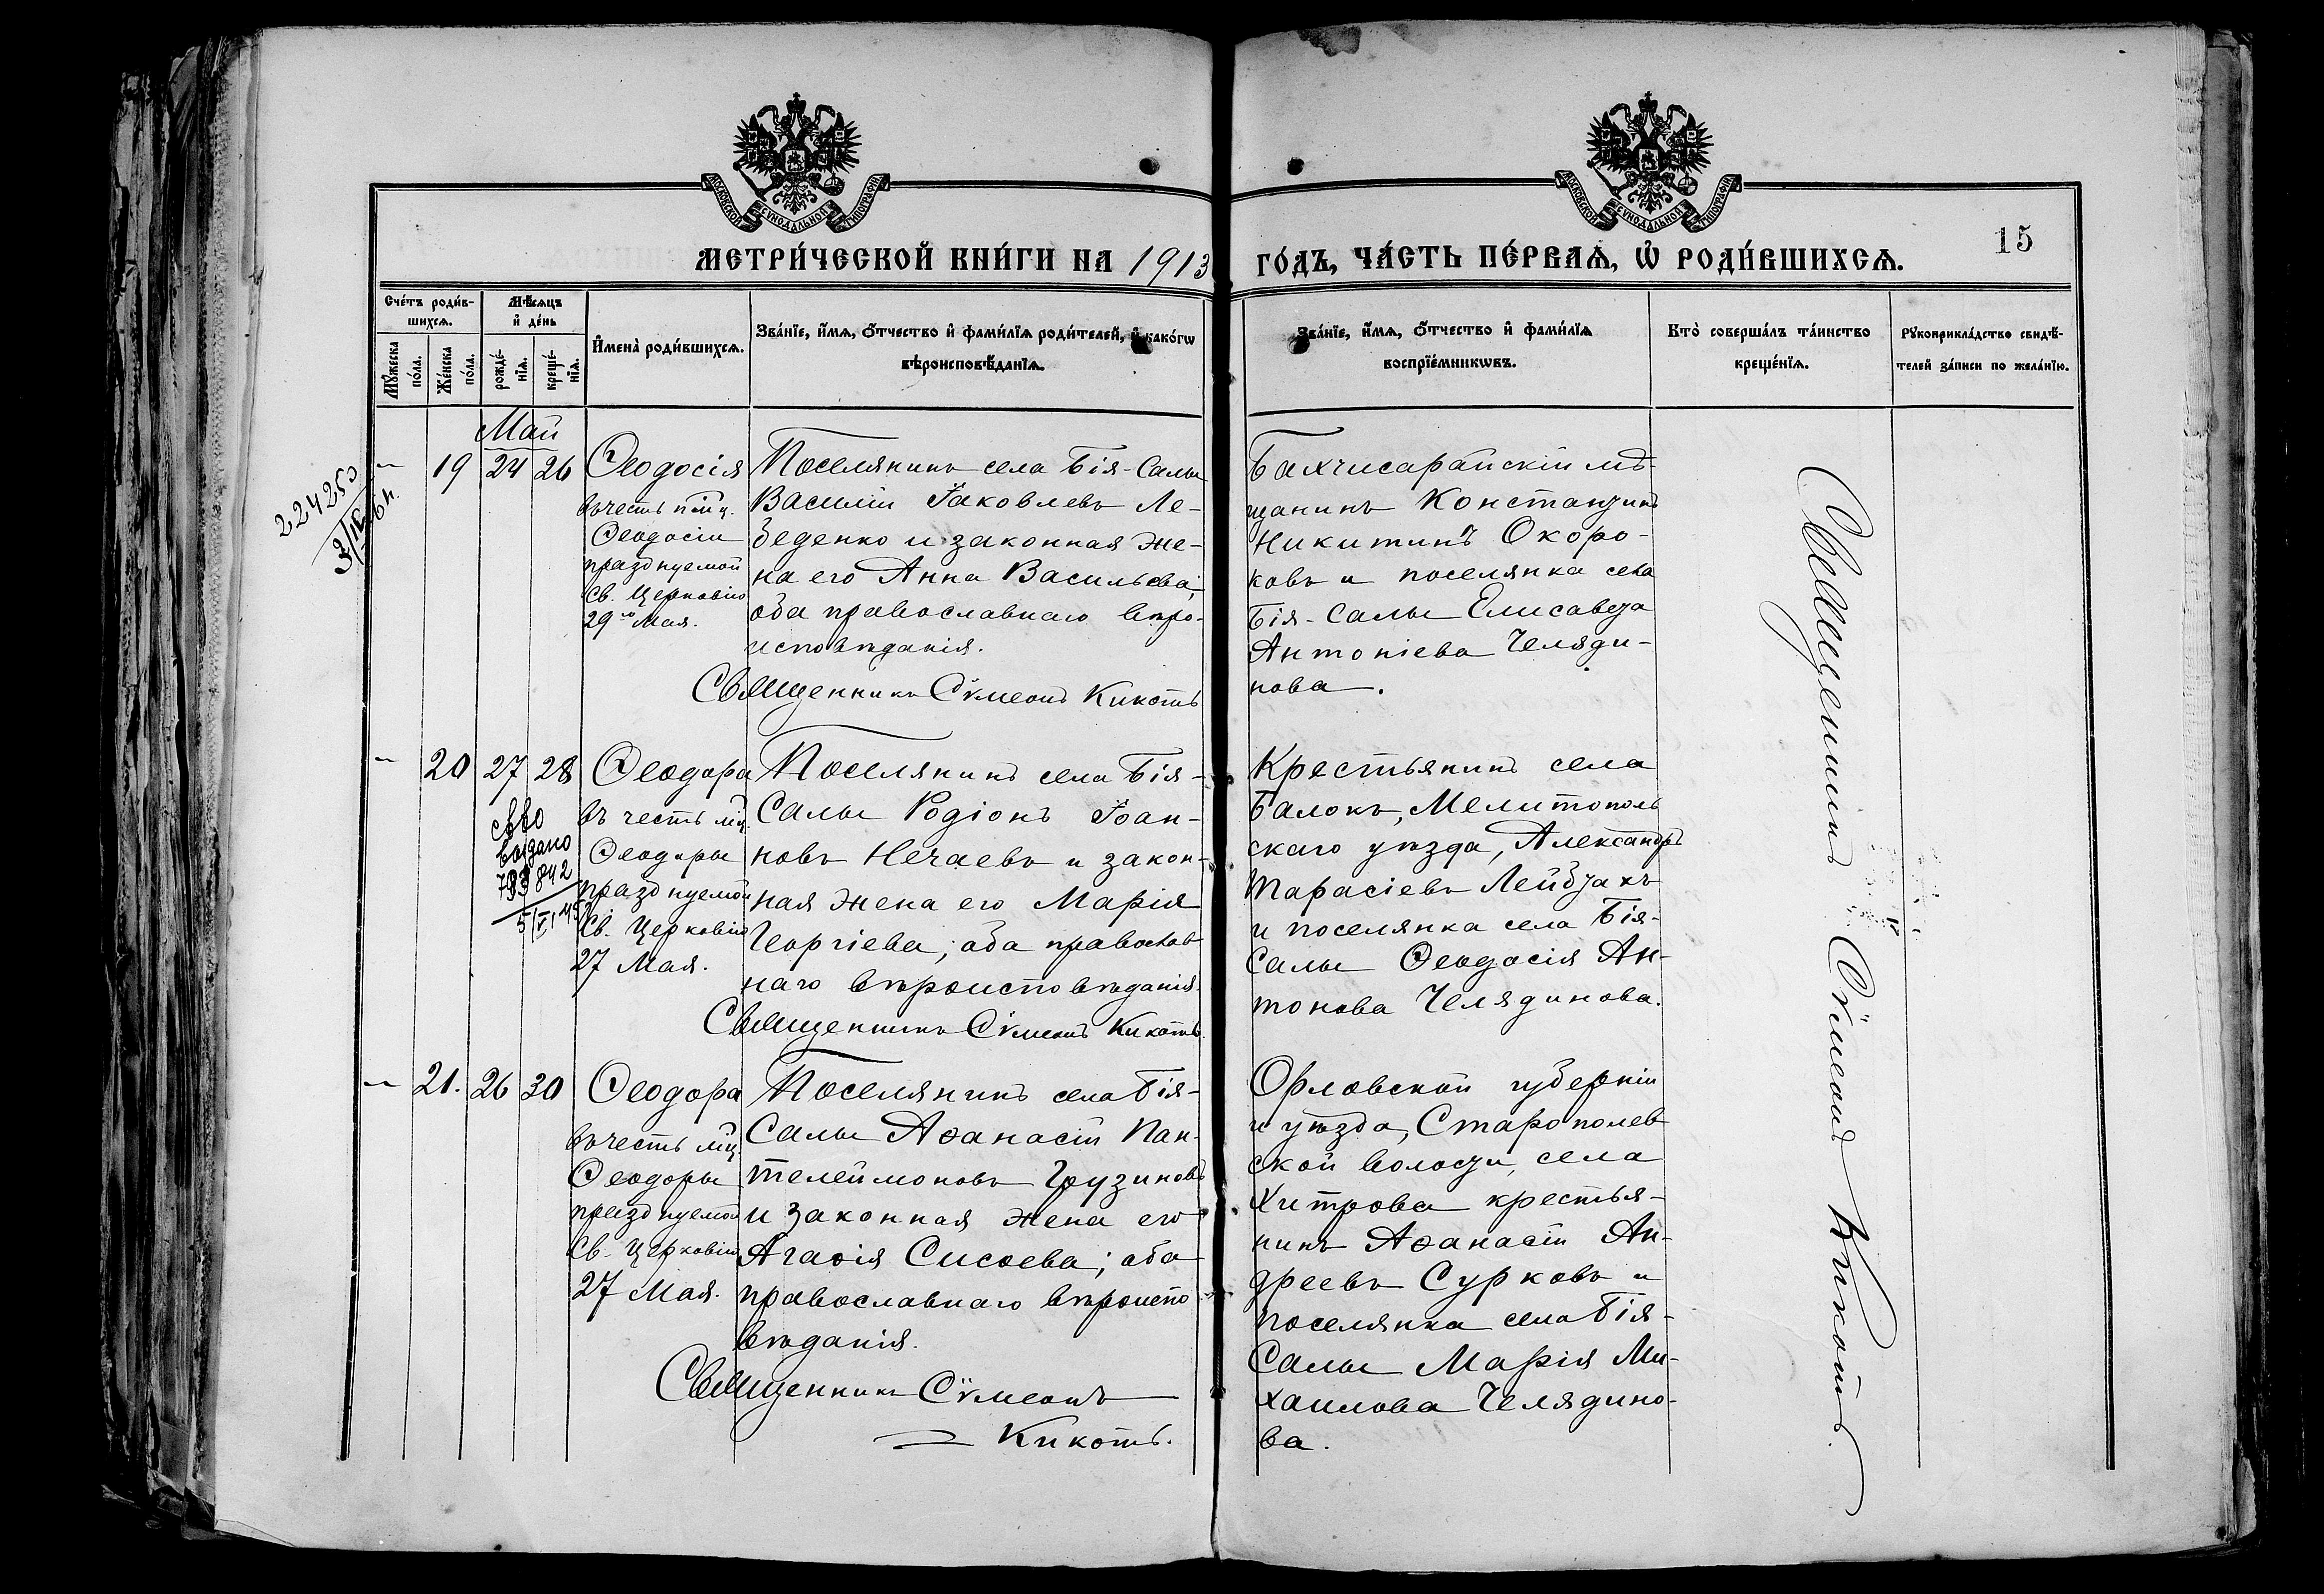 МОСКОВСКОЙ СѴНОДАЛЬНОЙ ТИПОГРАФІИ
МОСКОВСКОЙ СѴНОДАЛЬНОЙ ТИПОГРАФІИ
МЕТРИ́ЧЕСКОЙ КНИ́ГИ НА 1913 ГО́ДЪ, ЧА́СТЬ ПЕ́РВАѦ, Ѡ РОДИ́ВШИХСѦ.
15
Сче́тъ роди́в-
шихсѧ.
Мѣ́сѧцъ
и҆ де́нь
И҆мена̀ роди́вшихсѧ.
Зва́нїе, и҆́мѧ, ѻ҆́тчество и҆ фами́лїѧ роди́телей, и҆ како́гѡ
вѣроисповѣ́данїѧ.
Зва́нїе, и҆́мѧ, ѻ҆́тчество и҆ фами́лїѧ
воспрїе́мникѡвъ.
Кто̀ соверша́лъ та́инство
креще́нїѧ.
Рꙋкоприкла́дство свидѣ́-
телей за́писи по жела́нїю.
Мꙋ́жеска
по́ла.
Же́нска
по́ла.
рожде́-
нїѧ.
креще́-
нїѧ.
Май
19 24 26
Ѳеодосія
въ честь
Ѳеодосіи
празднуемой
Св. Церковію
29го Мая.
Поселянинъ села Бія-Салы
Василій Іаковлевъ Ле-
беденко и законная же-
на его Анна Васильева;
оба православнаго вѣро-
исповѣданія.
Священникъ Сѵмеонъ Кикоть
Бахчисарайскій мѣ-
щанинъ Константинъ
Никитинъ Окоро-
ковъ и поселянка села
Бія-Салы Елисавета
Антоніева Челяди-
нова.
224253
20 27 28
Ѳеодора
въ честь мц.
Ѳеодоры
празднуемой
Св. Церковію
27 Мая.
Поселянинъ села Бія-
Салы Родіонъ Іоан-
новъ Нечаевъ и закон-
ная жена его Марія
Георгіева; оба православ
наго вѣроисповѣданія.
Священникъ Сѵмеонъ Кикоть.
Крестьянинъ села
Балокъ, Мелитополь
скаго уѣзда, Александръ
Тарасіевъ Лейбтахъ
и поселянка села Бія-
Салы Ѳеодосія Ан-
тонова Челядинова.
св-во
выдано
21. 26 30
Ѳеодора
въ честь мц.
Ѳеодоры
празднуемой
Св. Церковію
27 Мая.
Поселянинъ села Бія-
Салы Аѳанасій Пан-
телеймоновъ Грузиновъ
и законная жена его
Агаѳія Сисоева; оба
православнаго вѣроиспо-
вѣданія.
Священникъ Сѵмеонъ
Кикоть.
Орловской губерніи
и уѣзда, Старополев
ской волости, села
Хитрова крестья-
нинъ Аѳанасій Ан-
дреевъ Сурковъ и
поселянка села Бія-
Салы Марія Ми-
хаилова Челядино-
ва.
Священникъ Сѵмеонъ Кикоть.